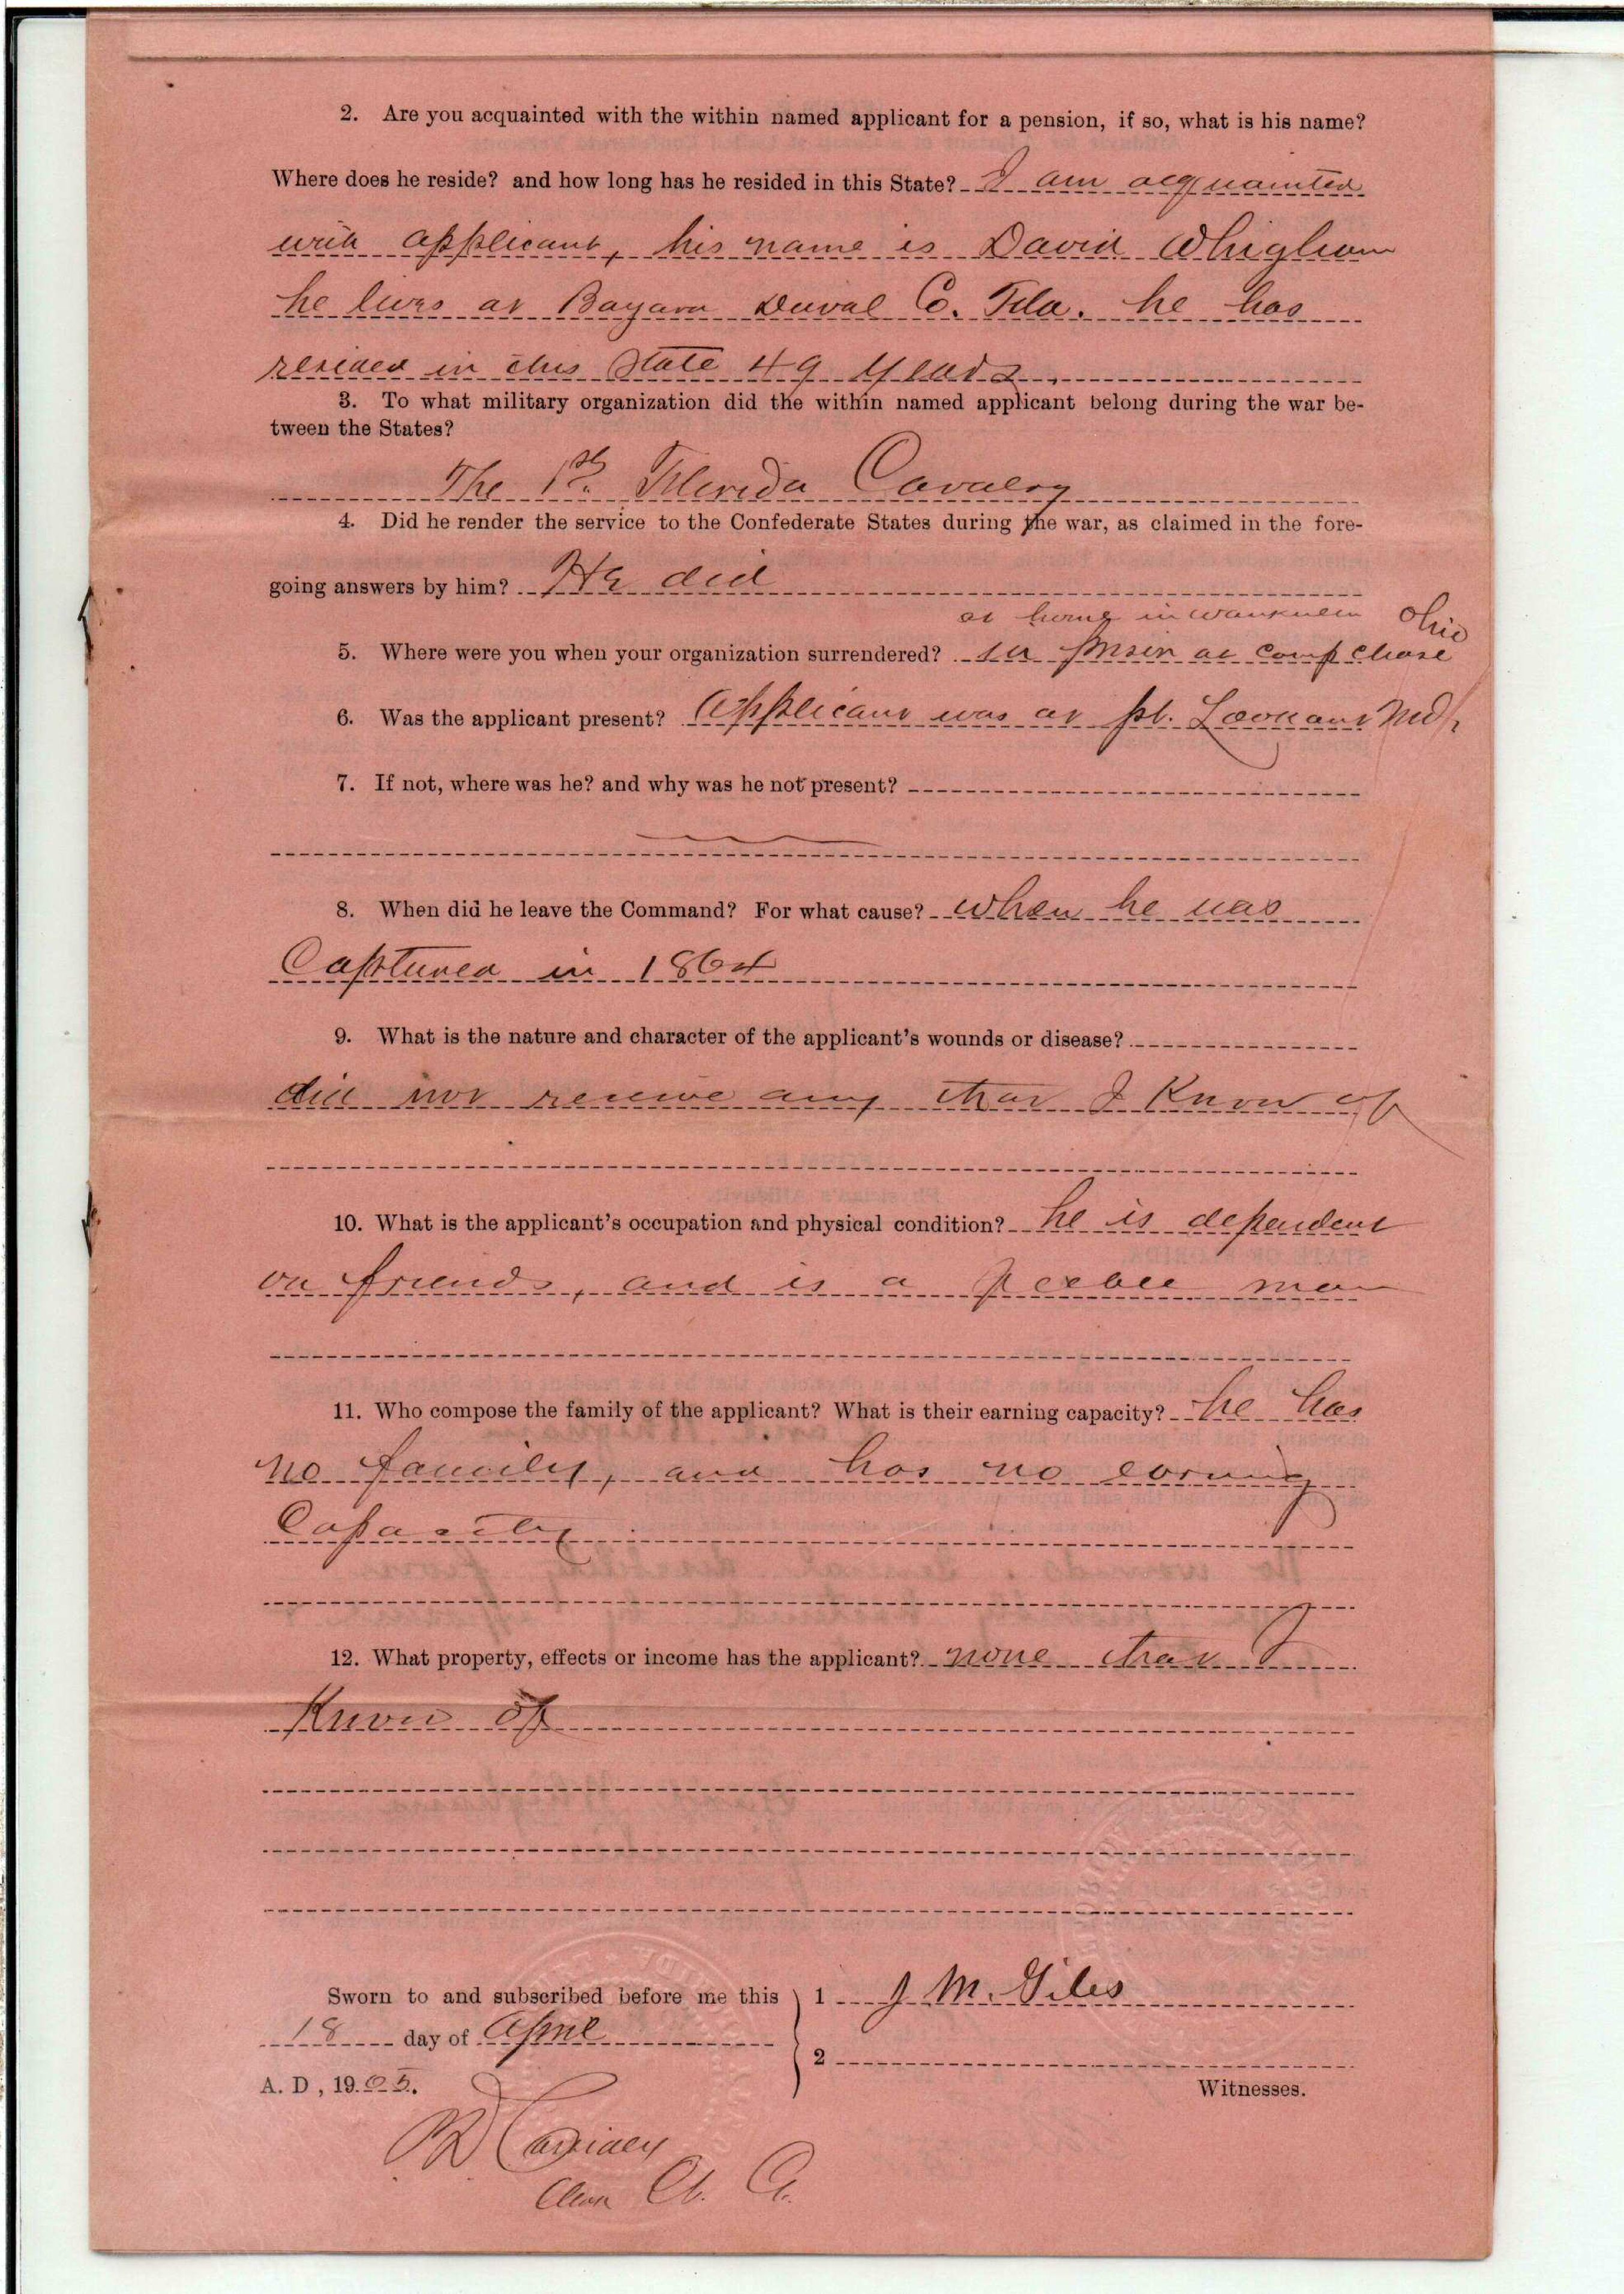 2. Are you acquainted with the within named applicant for a pension, if so, what is his name?
Where does he reside? and how long has he resided in this State? I am acquainted
with applicant, his name is David Whigham
he lives at Bayard Duval Co. Fla. he has
resided in this State 49 years.
3. To what military organization did the within named applicant belong during the war be-
tween the States?
The 1st Florida Cavalry
4. Did he render the service to the Confederate States during the war, as claimed in the fore-
going answers by him? He did
at home in Ohio
5. Where were you when your organization surrendered? in prison at Camp Chase
6. Was the applicant present? Applicant was at pt. Lookout Md.
7. If not, where was he? and why was he not present?
8. When did he leave the Command? For what cause? When he was
Captured in 1864
9. What is the nature and character of the applicant's wounds or disease?
did not receive any that I Know of
10. What is the applicant's occupation and physical condition? he is dependent
on friends, and is a feeble man
11. Who compose the family of the applicant? What is their earning capacity? he has
no family, and has no earning
Capacity
12. What property, effects or income has the applicant? none that I
Know of
Sworn to and subscribed before me this 1 J. M. Giles
18 day of April
2
A. D, 1905. Witnesses.
Clerk Ct. Ct.